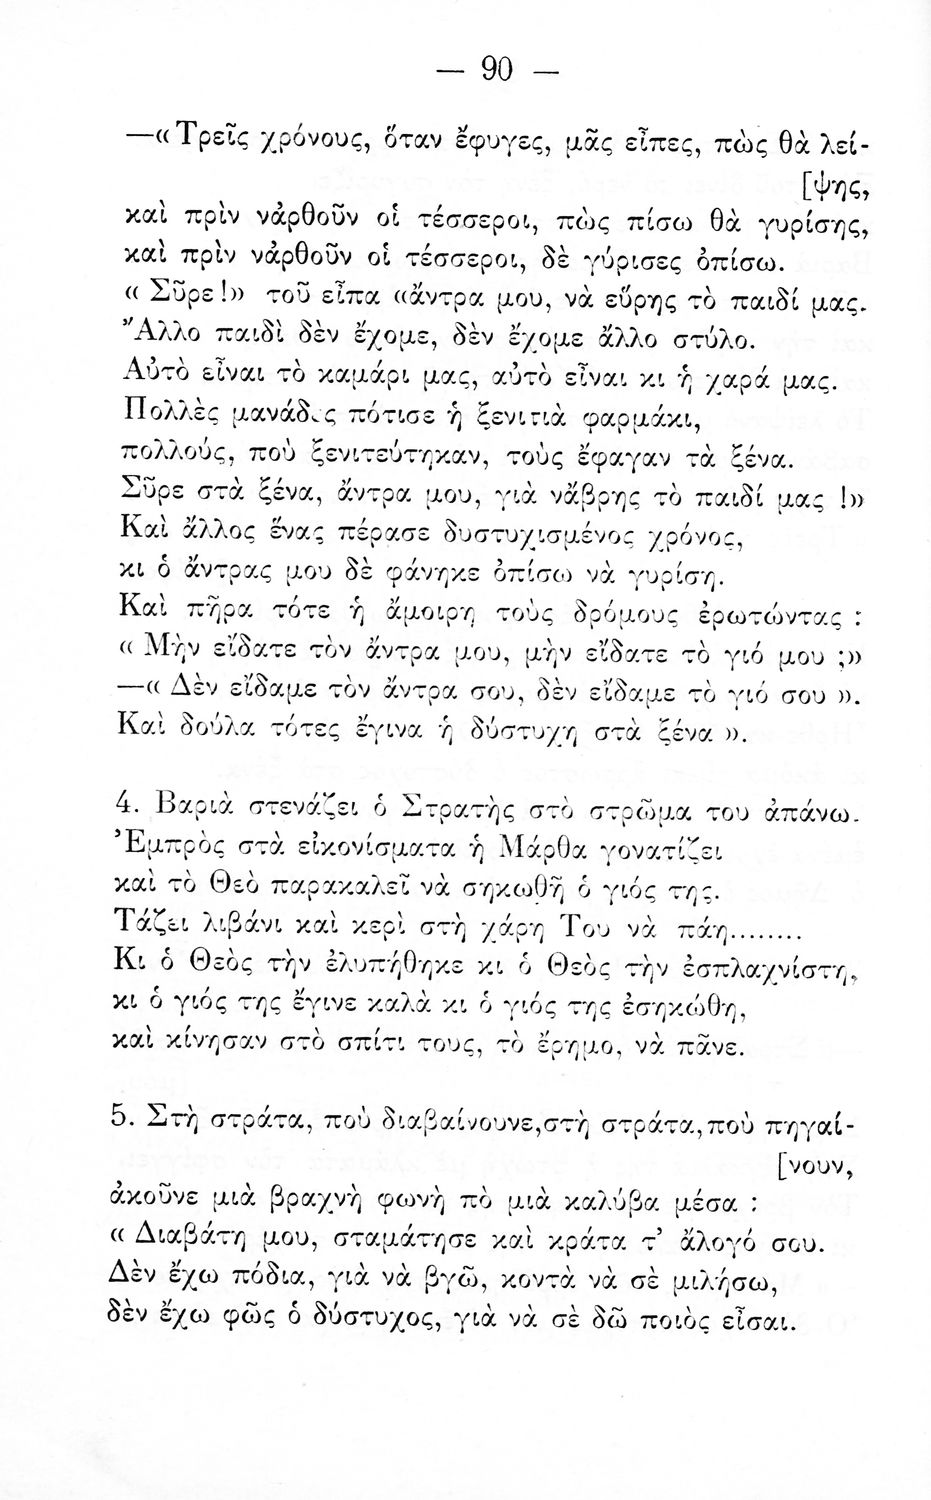 — 90 —
—«Τρεῖς χρόνους, ὅταν ἔφυγες, μᾶς εἶπες, πὼς θὰ λεί-
[ψης,
καὶ πρὶν νἀρθοῦν οἱ τέσσεροι, πὼς πίσω θὰ γυρίσης,
καὶ πρὶν νἀρθοῦν οἱ τέσσεροι, δὲ γύρισες ὀπίσω.
« Σῦρε!» τοῦ εἶπα «ἄντρα μου, νὰ εὕρης τὸ παιδί μας.
Ἄλλο παιδὶ δὲν ἔχομε, δὲν ἔχομε ἄλλο στύλο.
Αὐτὸ εἶναι τὸ καμάρι μας, αὐτὸ εἶναι κι ἡ χαρά μας.
Πολλὲς μανάδες πότισε ἡ ξενιτιὰ φαρμάκι,
πολλούς, ποὺ ξενιτεύτηκαν, τοὺς ἔφαγαν τὰ ξένα.
Σῦρε στὰ ξένα, ἄντρα μου, γιὰ νἄβρης τὸ παιδί μας !»
Καὶ ἄλλος ἕνας πέρασε δυστυχισμένος χρόνος,
κι ὁ ἄντρας μου δὲ φάνηκε ὀπίσω νὰ γυρίση.
Καὶ πῆρα τότε ἡ ἄμοιρη τοὺς δρόμους ἐρωτώντας :
« Μὴν εἴδατε τὸν ἄντρα μου, μὴν εἴδατε τὸ γιό μου ;»
—« Δὲν εἴδαμε τὸν ἄντρα σου, δὲν εἴδαμε τὸ γιό σου ».
Καὶ δούλα τότες ἔγινα ἡ δύστυχη στὰ ξένα ».
4. Βαριὰ στενάζει ὁ Στρατὴς στὸ στρῶμα του ἀπάνω.
Ἐμπρὸς στὰ εἰκονίσματα ἡ Μάρθα γονατίζει
καὶ τὸ Θεὸ παρακαλεῖ νὰ σηκωθῆ ὁ γιός της.
Τάζει λιβάνι καὶ κερὶ στὴ χάρη Του νὰ πάη........
Κι ὁ Θεὸς τὴν ἐλυπήθηκε κι ὁ Θεὸς τὴν ἐσπλαχνίστη,
κι ὁ γιός της ἔγινε καλὰ κι ὁ γιός της ἐσηκώθη,
καὶ κίνησαν στὸ σπίτι τους, τὸ ἔρημο, νὰ πᾶνε.
5. Στὴ στράτα, ποὺ διαβαίνουνε,στὴ στράτα,ποὺ πηγαί-
[νουν,
ἀκοῦνε μιὰ βραχνὴ φωνὴ πὸ μιὰ καλύβα μέσα :
« Διαβάτη μου, σταμάτησε καὶ κράτα τ’ ἄλογό σου.
Δὲν ἔχω πόδια, γιὰ νὰ βγῶ, κοντὰ νὰ σὲ μιλήσω,
δὲν ἔχω φῶς ὁ δύστυχος, γιὰ νὰ σὲ δῶ ποιὸς εἶσαι.